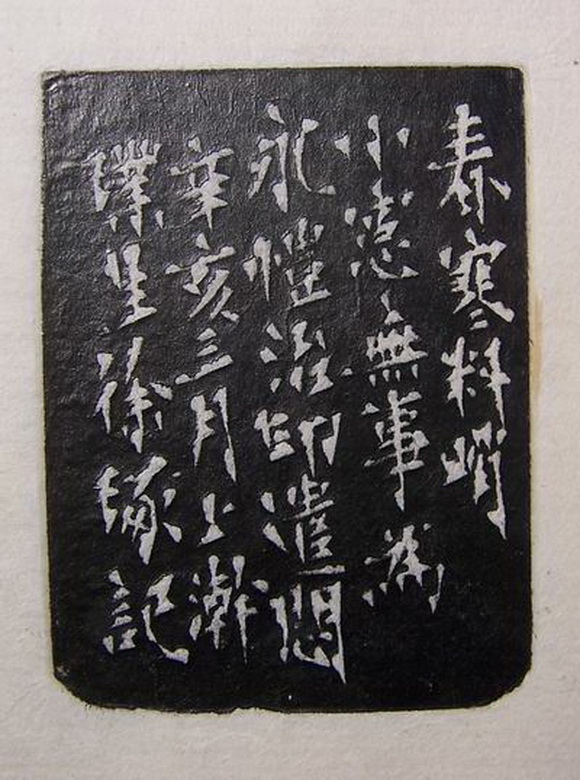 春寒料峭
小窻無事為
永愷治印遣悶
辛亥三月上澣
璞徐琢記